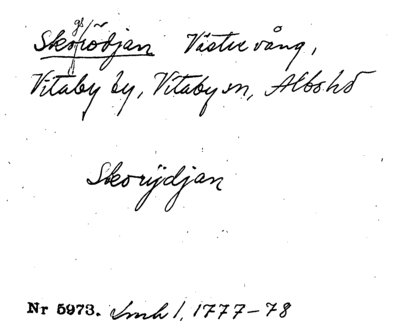 Skogsrödjan Västervång,
Vitaby by, Vitaby sn, Albo hd
Skorijdjan
Nr 5973. Lmh 1, 1777-78